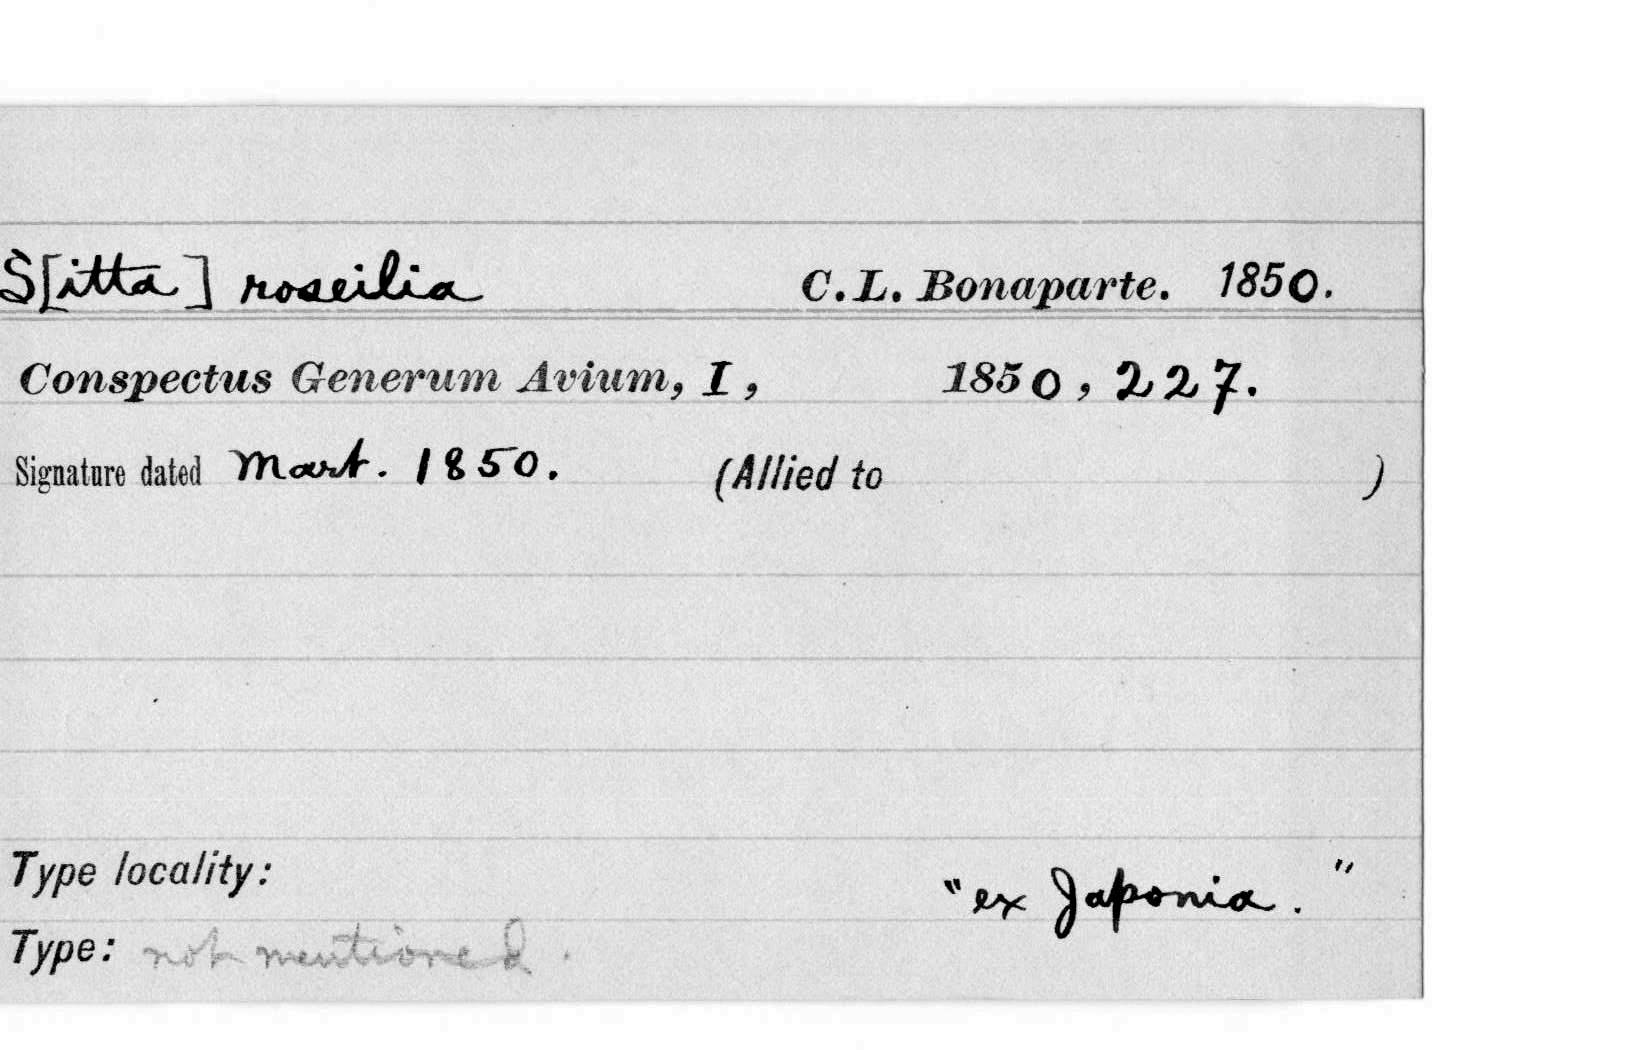 S[itta] roseilia C. L. Bonaparte. 1850.
Conspectus Generum Avium, I, 1850, 227.
Signature dated Mart. 1850. (Allied to )
Type locality: "ex Japonia."
Type: not mentioned.